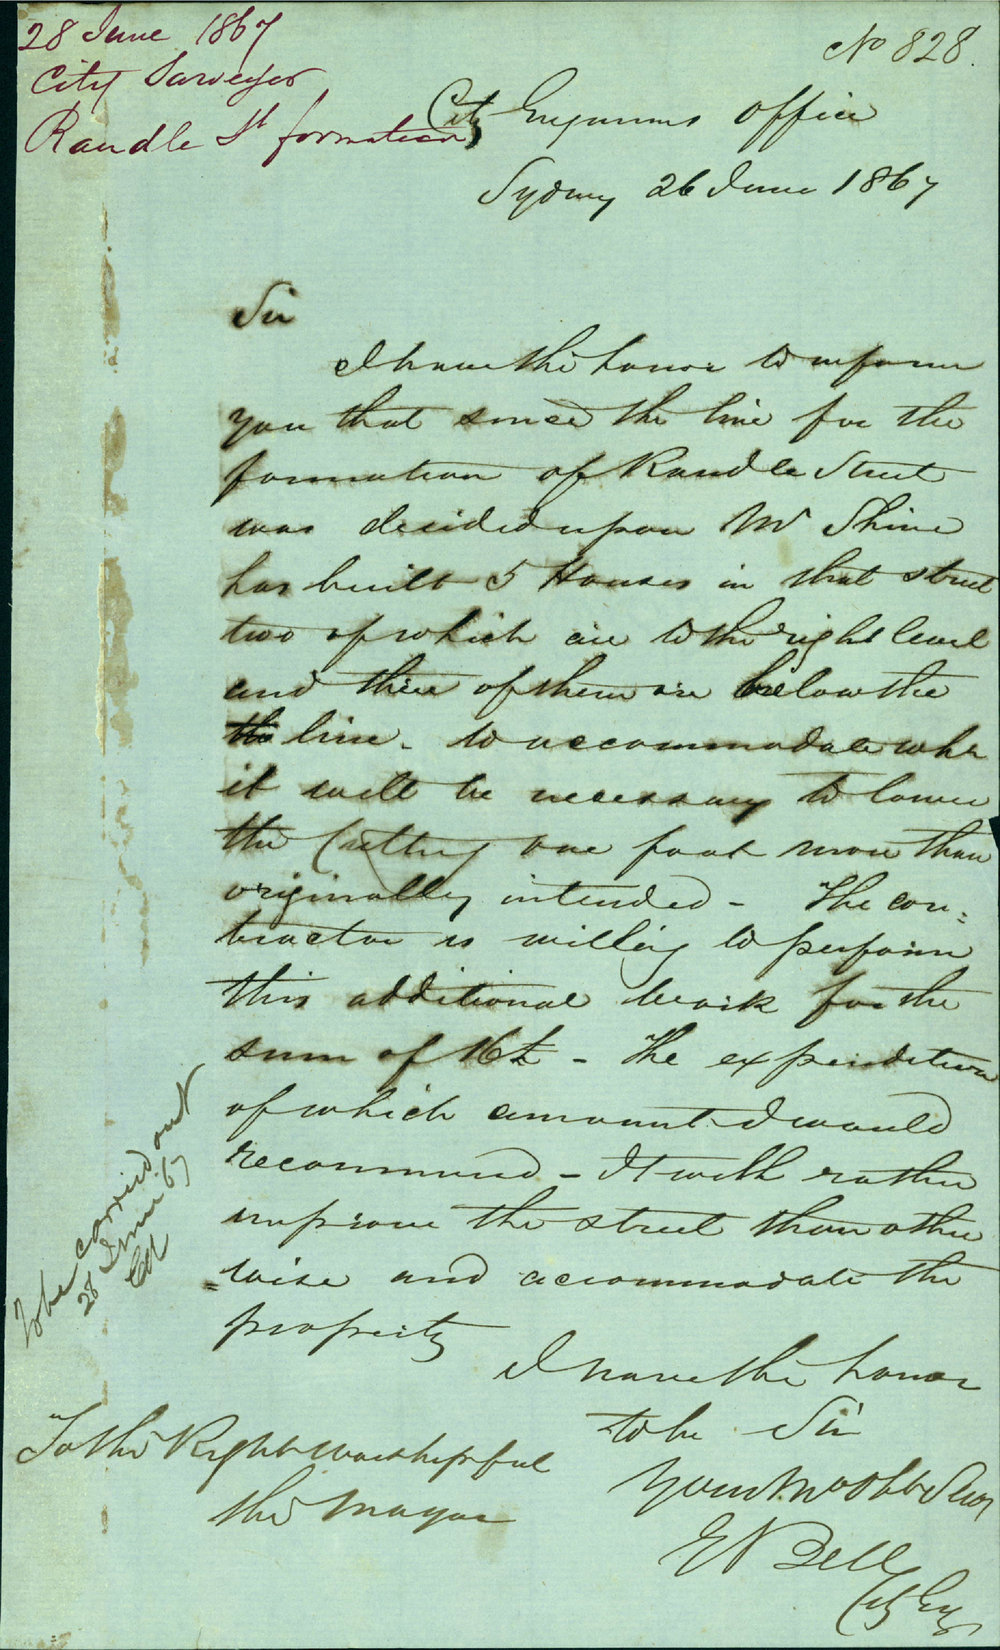 28 June 1867
City Surveyor
Randle St formation
No 828.
City Engineers Office
Sydney 26 June 1867
Sir
I have the honor to inform
you that since the line for the
formation of Randle Street
was decided upon Mr Shine
has built 5 Houses in that street
two of which are to the right level
and three of them are below the
the line - to accommodate
it will be necessary to lower
the Cutting one foot more than
originally intended - The con=
tractor is willing to perform
this additional work for the
sum of 16£ - The expenditure
of which amount I would
recommend - It will rather
improve the street than other
=wise and accommodate the
property
I have the honor
to be Sir
Your Mo Obt Serv
E Bell
City Eng
To the Right Worshipful
the Mayor
To be carried out
28 June 67